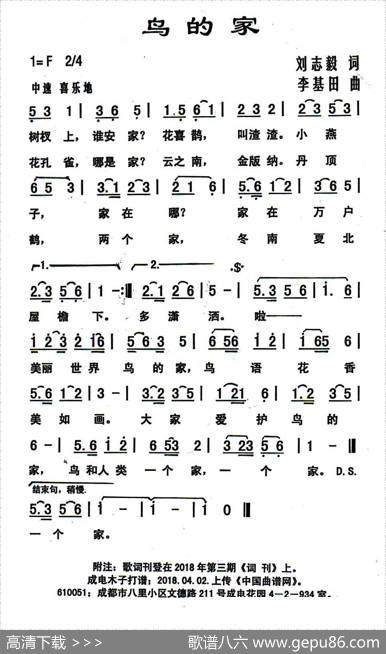 鸟的家
1=F 2/4
刘志毅 词
中速 喜乐地
李基田 曲
5 3 1 | 3 6 5 | 1.5 6 1 | 2 3 2 | 2.3 5 3 |
树杈 上，谁安 家？花喜 鹊， 叫渣 渣。小 燕
花孔 雀，哪是 家？云之 南， 金版 纳。丹 顶
6 5 3 | 3.1 2 3 | 2 1 6 | 5.6 1 2 | 3 2 3 |
子， 家 在 哪？ 家 在 万 户
鹤， 两 个 家， 冬 南 夏 北
1. 2.
2.3 5 6 | 1 - :| 2.1 2 6 | 5 - | 5.3 5 6 | 1. 6 |
屋 檐 下。 多 潇 洒。 啦——
1 2 3 1 6 | 2 3 5 | 6 56 1 2 | 6 5 3 |
美丽 世 界 鸟 的 家，鸟 语 花 香
5.6 1 2 | 3 - | 3.2 3 5 | 1 21 6 | 1.2 3 5 |
美 如 画。 大 家 爱 护 鸟 的
6 - | 5.6 1 2 | 6 53 2 | 3 23 5 6 | 1 - |
家， 鸟 和 人 类 一 个 家， 一 个 家。D.S.
结束句，稍慢.
5.3 5 6 | 1 - | 1 - | 1 0 |
一 个 家。
附注：歌词刊登在 2018 年第三期《词 刊》上。
成电木子打谱：2018.04.02.上传《中国曲谱网》。
610051；成都市八里小区文德路 211 号成电花园 4—2—934 室.
高清下载 >>>
歌谱八六 www.gepu86.com